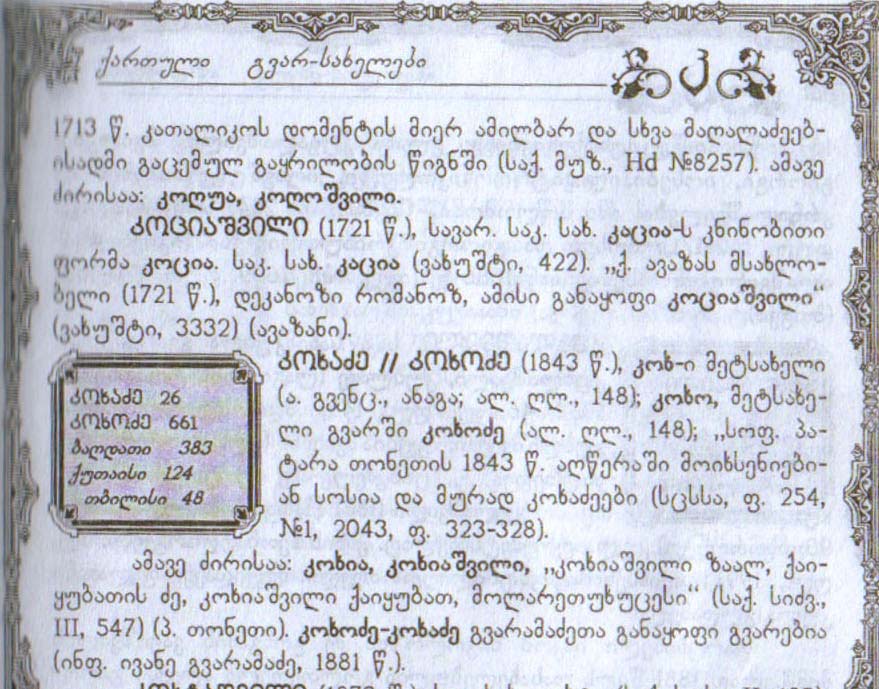 ქართული გვარ-სახელები
კ
1713 წ. კათალიკოს დომენტის მიერ ამილბარ და სხვა მაღალაძეებ-
ისადმი გაცემულ გაყრილობის წიგნში (საქ. მუზ., Hd №8257). ამავე
ძირისაა: კოღუა, კოღოშვილი.
კოციაშვილი (1721 წ.), სავარ. საკ. სახ. კაცია-ს კნინობითი
ფორმა კოცია. საკ. სახ. კაცია (ვახუშტი, 422). „ქ. ავაზას მსახლო-
ბელი (1721 წ.), დეკანოზი რომანოზ, ამისი განაყოფი კოციაშვილი“
(ვახუშტი, 3332) (ავაზანი).
კოხაძე // კოხოძე (1843 წ.), კოხ-ი მეტსახელი
(ა. გვენც., ანაგა; ალ. ღლ., 148); კოხო, მეტსახე-
ლი გვარში კოხოძე (ალ. ღლ., 148); „სოფ. პა-
ტარა თონეთის 1843 წ. აღწერაში მოიხსენიები-
ან სოსია და მურად კოხაძეები (სცსსა, ფ. 254,
№1, 2043, ფ. 323-328).
კოხაძე 26
კოხოძე 661
ბაღდათი 383
ქუთაისი 124
თბილისი 48
ამავე ძირისაა: კოხია, კოხიაშვილი, „კოხიაშვილი ზაალ, ქაი-
ყუბათის ძე, კოხიაშვილი ქაიყუბათ, მოლარეთუხუცესი“ (საქ. სიძვ.,
III, 547) (პ. თონეთი). კოხოძე-კოხაძე გვარამაძეთა განაყოფი გვარებია
(ინფ. ივანე გვარამაძე, 1881 წ.).